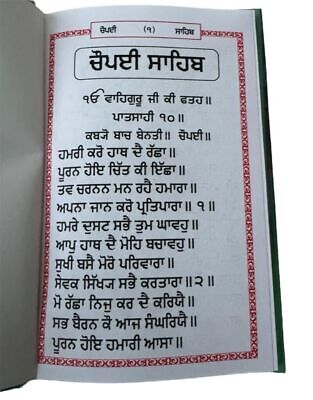 ਚੌਪਈ (੧) ਸਾਹਿਬ
ਚੌਪਈ ਸਾਹਿਬ
ੴ ਵਾਹਿਗੁਰੂ ਜੀ ਕੀ ਫਤਹ॥
ਪਾਤਸਾਹੀ ੧੦॥
ਕਬਯੋ ਬਾਚ ਬੇਨਤੀ॥ ਚੌਪਈ॥
ਹਮਰੀ ਕਰੋ ਹਾਥ ਦੈ ਰੱਛਾ॥
ਪੂਰਨ ਹੋਇ ਚਿੱਤ ਕੀ ਇੱਛਾ॥
ਤਵ ਚਰਨਨ ਮਨ ਰਹੈ ਹਮਾਰਾ॥
ਅਪਨਾ ਜਾਨ ਕਰੋ ਪ੍ਰਤਿਪਾਰਾ॥ ੧॥
ਹਮਰੇ ਦੁਸਟ ਸਭੈ ਤੁਮ ਘਾਵਹੁ॥
ਆਪੁ ਹਾਥ ਦੈ ਮੋਹਿ ਬਚਾਵਹੁ॥
ਸੁਖੀ ਬਸੈ ਮੋਰੋ ਪਰਿਵਾਰਾ॥
ਸੇਵਕ ਸਿੱਖ੍ਯ ਸਭੈ ਕਰਤਾਰਾ॥੨॥
ਮੋ ਰੱਛਾ ਨਿਜੁ ਕਰ ਦੈ ਕਰਿਯੈ॥
ਸਭ ਬੈਰਨ ਕੌ ਆਜ ਸੰਘਰਿਯੈ॥
ਪੂਰਨ ਹੋਇ ਹਮਾਰੀ ਆਸਾ॥